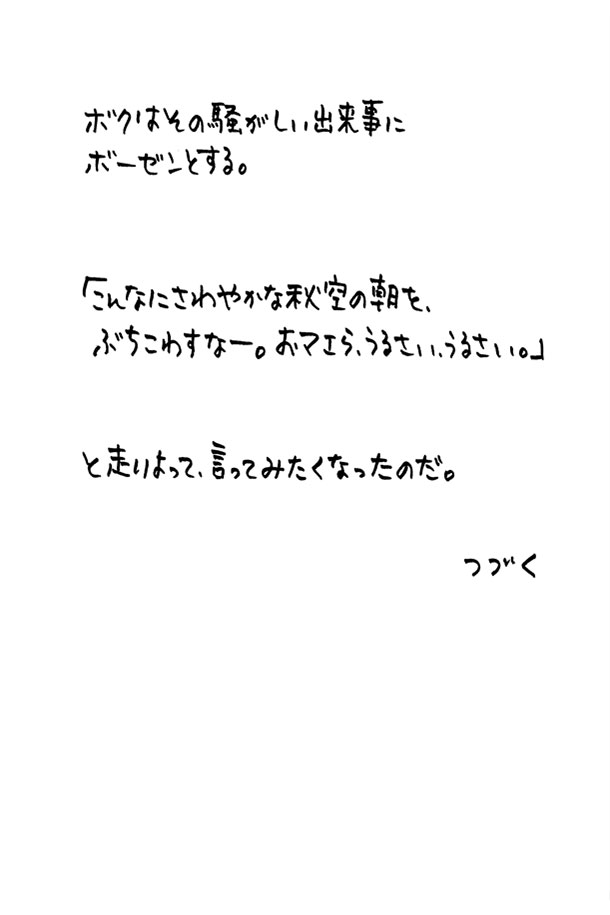 ボクはその騒がしい出来事に
ボーゼンとする。
「こんなにさわやかな秋空の朝を、
ぶちこわすなー。おマエら、うるさい、うるさい。」
と走りよって、言ってみたくなったのだ。
つづく